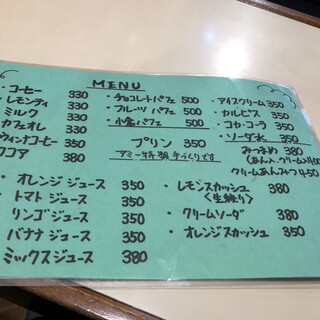 MENU
・コーヒー 330
・レモンティ 330
・ミルク 330
カフェオレ 330
ウィンナコーヒー 350
ココア 380
・チョコレートパフェ 500
・フルーツ パフェ 500
・小倉パフェ 500
プリン 350
アミー特製 手づくりです
・アイスクリーム 350
・カルピス 350
・コカ・コーラ 350
・ソーダ水 350
みつまめ 380
(あん入、クリーム) 400
クリームあんみつ 450
・オレンジジュース 350
・トマトジュース 350
・リンゴジュース 350
・バナナジュース 350
・ミックスジュース 380
・レモンスカッシュ 380
〈生絞り〉
・クリームソーダ 380
・オレンジスカッシュ 350